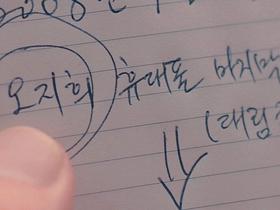 오지희 휴대폰 마지막
(대림